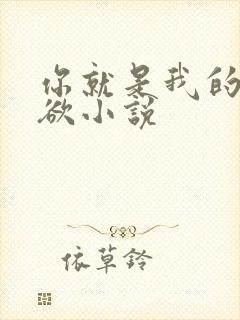 你就是我的
欲小说
依草铃